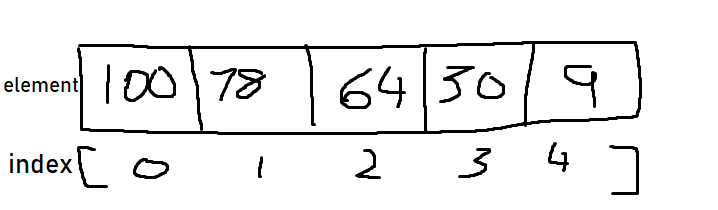 element 100 78 64 30 9
index [ 0 1 2 3 4 ]